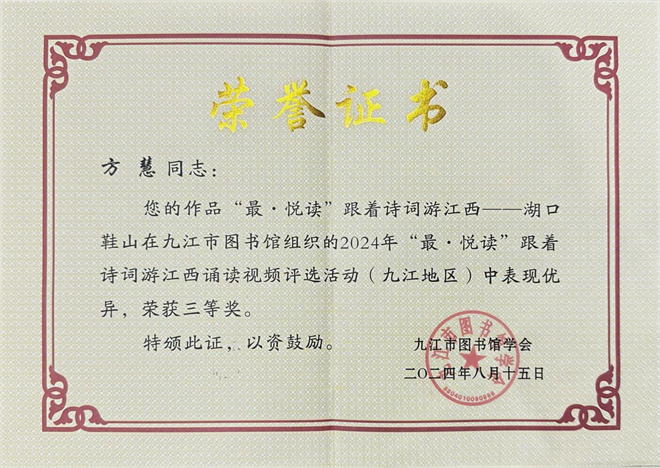 荣誉证书
方 慧同志：
您的作品“最·悦读”跟着诗词游江西——湖口
鞋山在九江市图书馆组织的2024年“最·悦读”跟着
诗词游江西诵读视频评选活动（九江地区）中表现优
异，荣获三等奖。
特颁此证，以资鼓励。
九江市图书馆学会
二〇二四年八月十五日
九江市图书馆学会